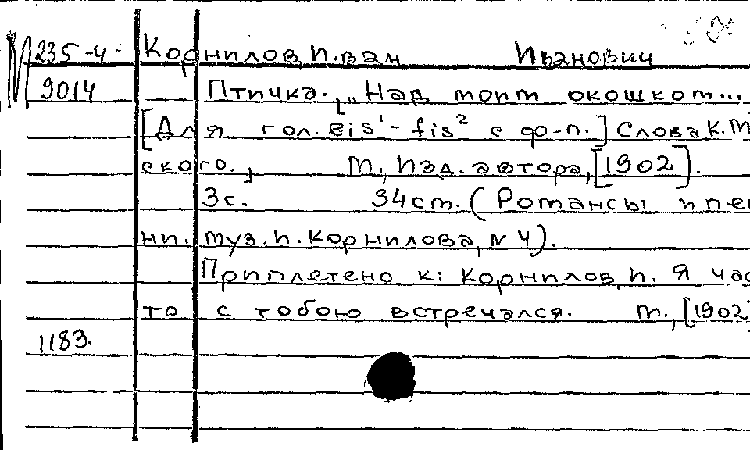 М 235-4. Корнилов, Иван Иванович
9014 Птичка. „Над моим окошком...
[Для гол. eis¹ - fis² с ф-п.] Слова К.М
ского. М., Изд. автора, [1902].
3с. 34см. (Романсы и пе
ни. муз. И. Корнилова, № 4).
Приплетено к: Корнилов, И. Я час
то с тобою встречался. М., [1902
1183.